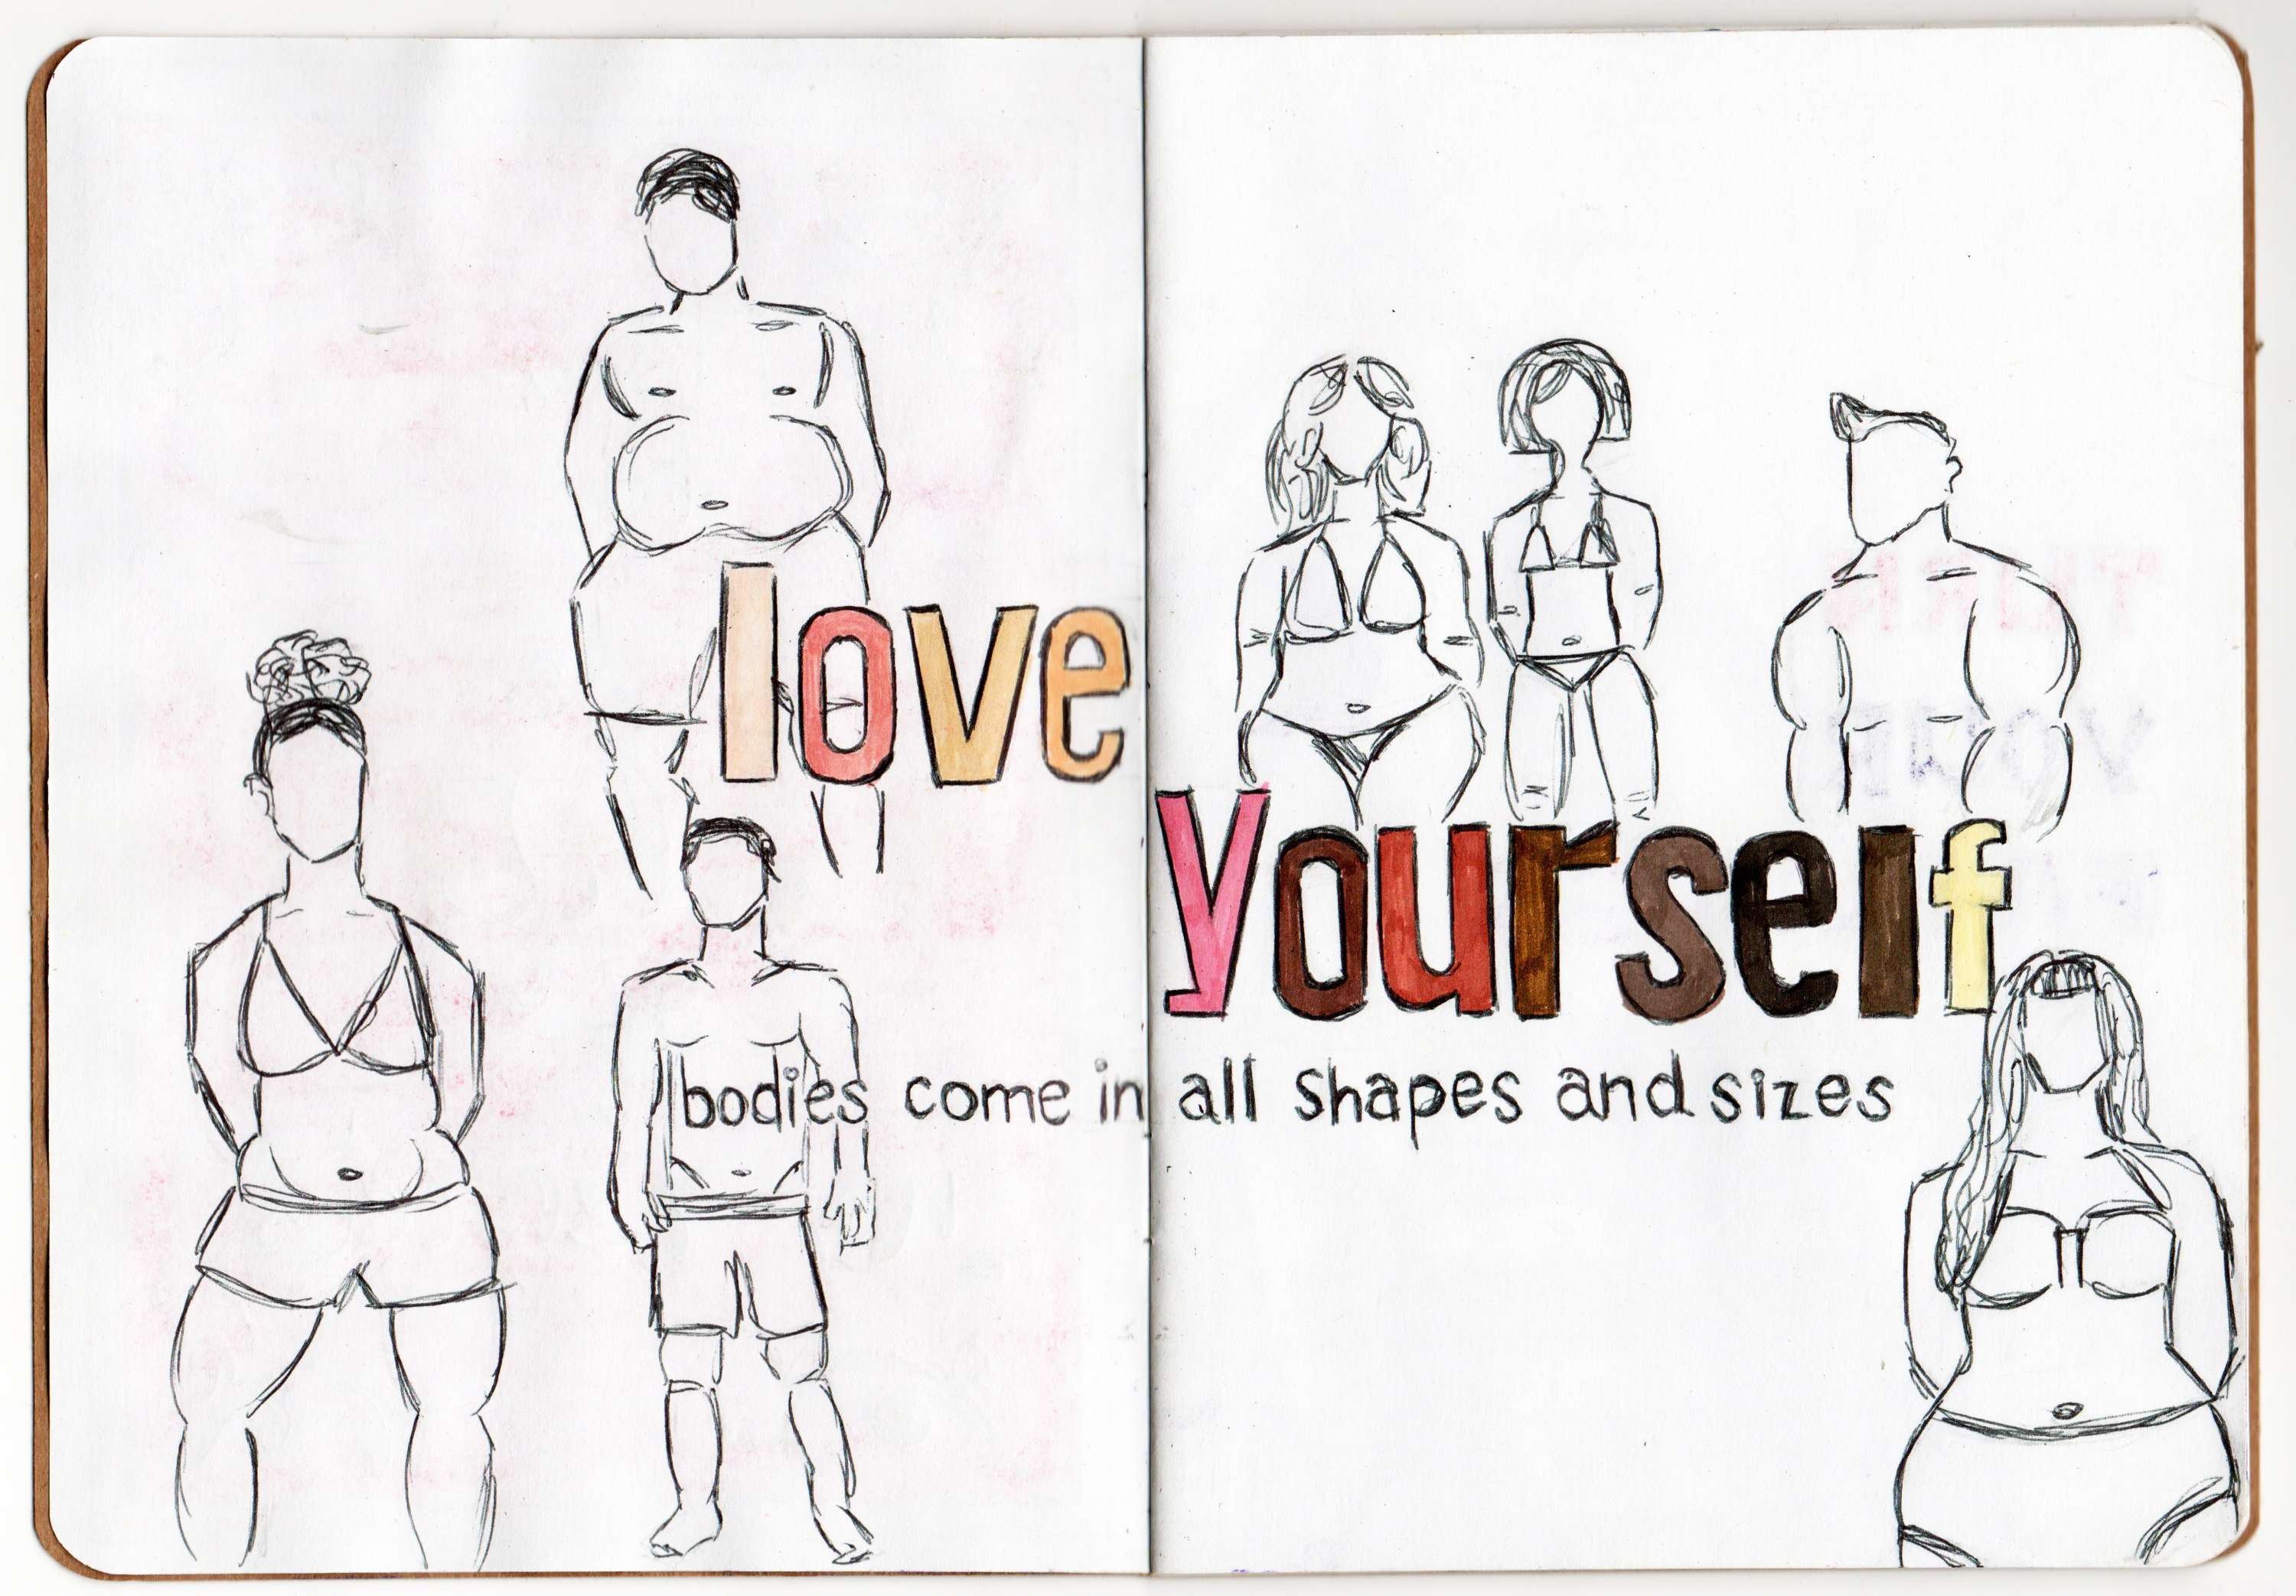 love
yourself
bodies come in all shapes and sizes